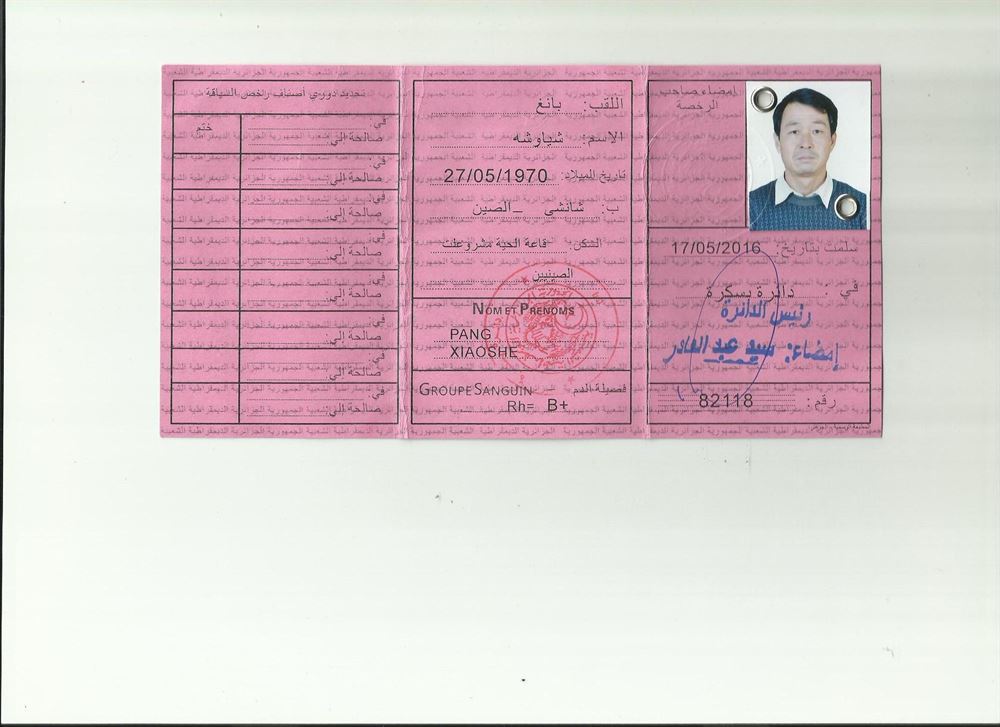 امضاء صاحب
الرخصة
سلمت بتاريخ: 17/05/2016
في: دائرة بسكرة
رئيس الدائرة
إمضاء: سيد عبد القادر
رقم: 82118
اللقب: بانغ
الاسم: شياوشه
تاريخ الميلاد: 27/05/1970
ب: شانشي _الصين
السكن: قاعة الحية مشروعات
الصينيين
NOM ET PRENOMS
PANG
XIAOSHE
GROUPE SANGUIN فصيلة الدم
Rh= B+
تحديد دوري أصناف رخص السياقة
ختم
في
صالحة إلى
في
صالحة إلى
في
صالحة إلى
في
صالحة إلى
في
صالحة إلى
في
صالحة إلى
في
صالحة إلى
في
صالحة إلى